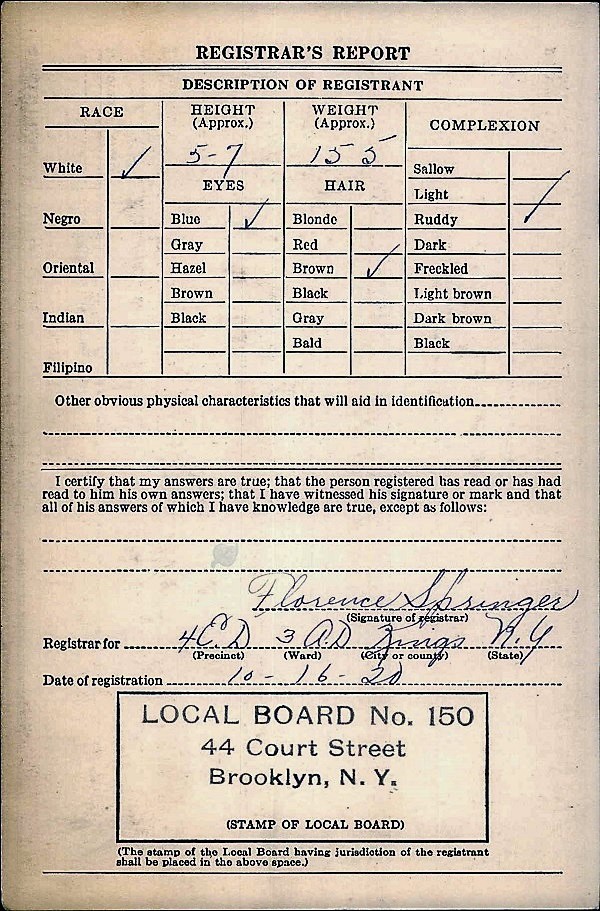 REGISTRAR'S REPORT
DESCRIPTION OF REGISTRANT
RACE
HEIGHT
(Approx.)
WEIGHT
(Approx.)
COMPLEXION
5-7
155
White ✓
EYES
HAIR
Sallow
Light ✓
Negro
Blue ✓
Blonde
Ruddy
Gray
Red
Dark
Oriental
Hazel
Brown ✓
Freckled
Brown
Black
Light brown
Indian
Black
Gray
Dark brown
Bald
Black
Filipino
Other obvious physical characteristics that will aid in identification
I certify that my answers are true; that the person registered has read or has had
read to him his own answers; that I have witnessed his signature or mark and that
all of his answers of which I have knowledge are true, except as follows:
Florence Springer
(Signature of registrar)
Registrar for 4 E.D 3 A.D Kings N.Y
(Precinct) (Ward) (City or county) (State)
Date of registration 10-16-
LOCAL BOARD No. 150
44 Court Street
Brooklyn, N. Y.
(STAMP OF LOCAL BOARD)
(The stamp of the Local Board having jurisdiction of the registrant
shall be placed in the above space.)